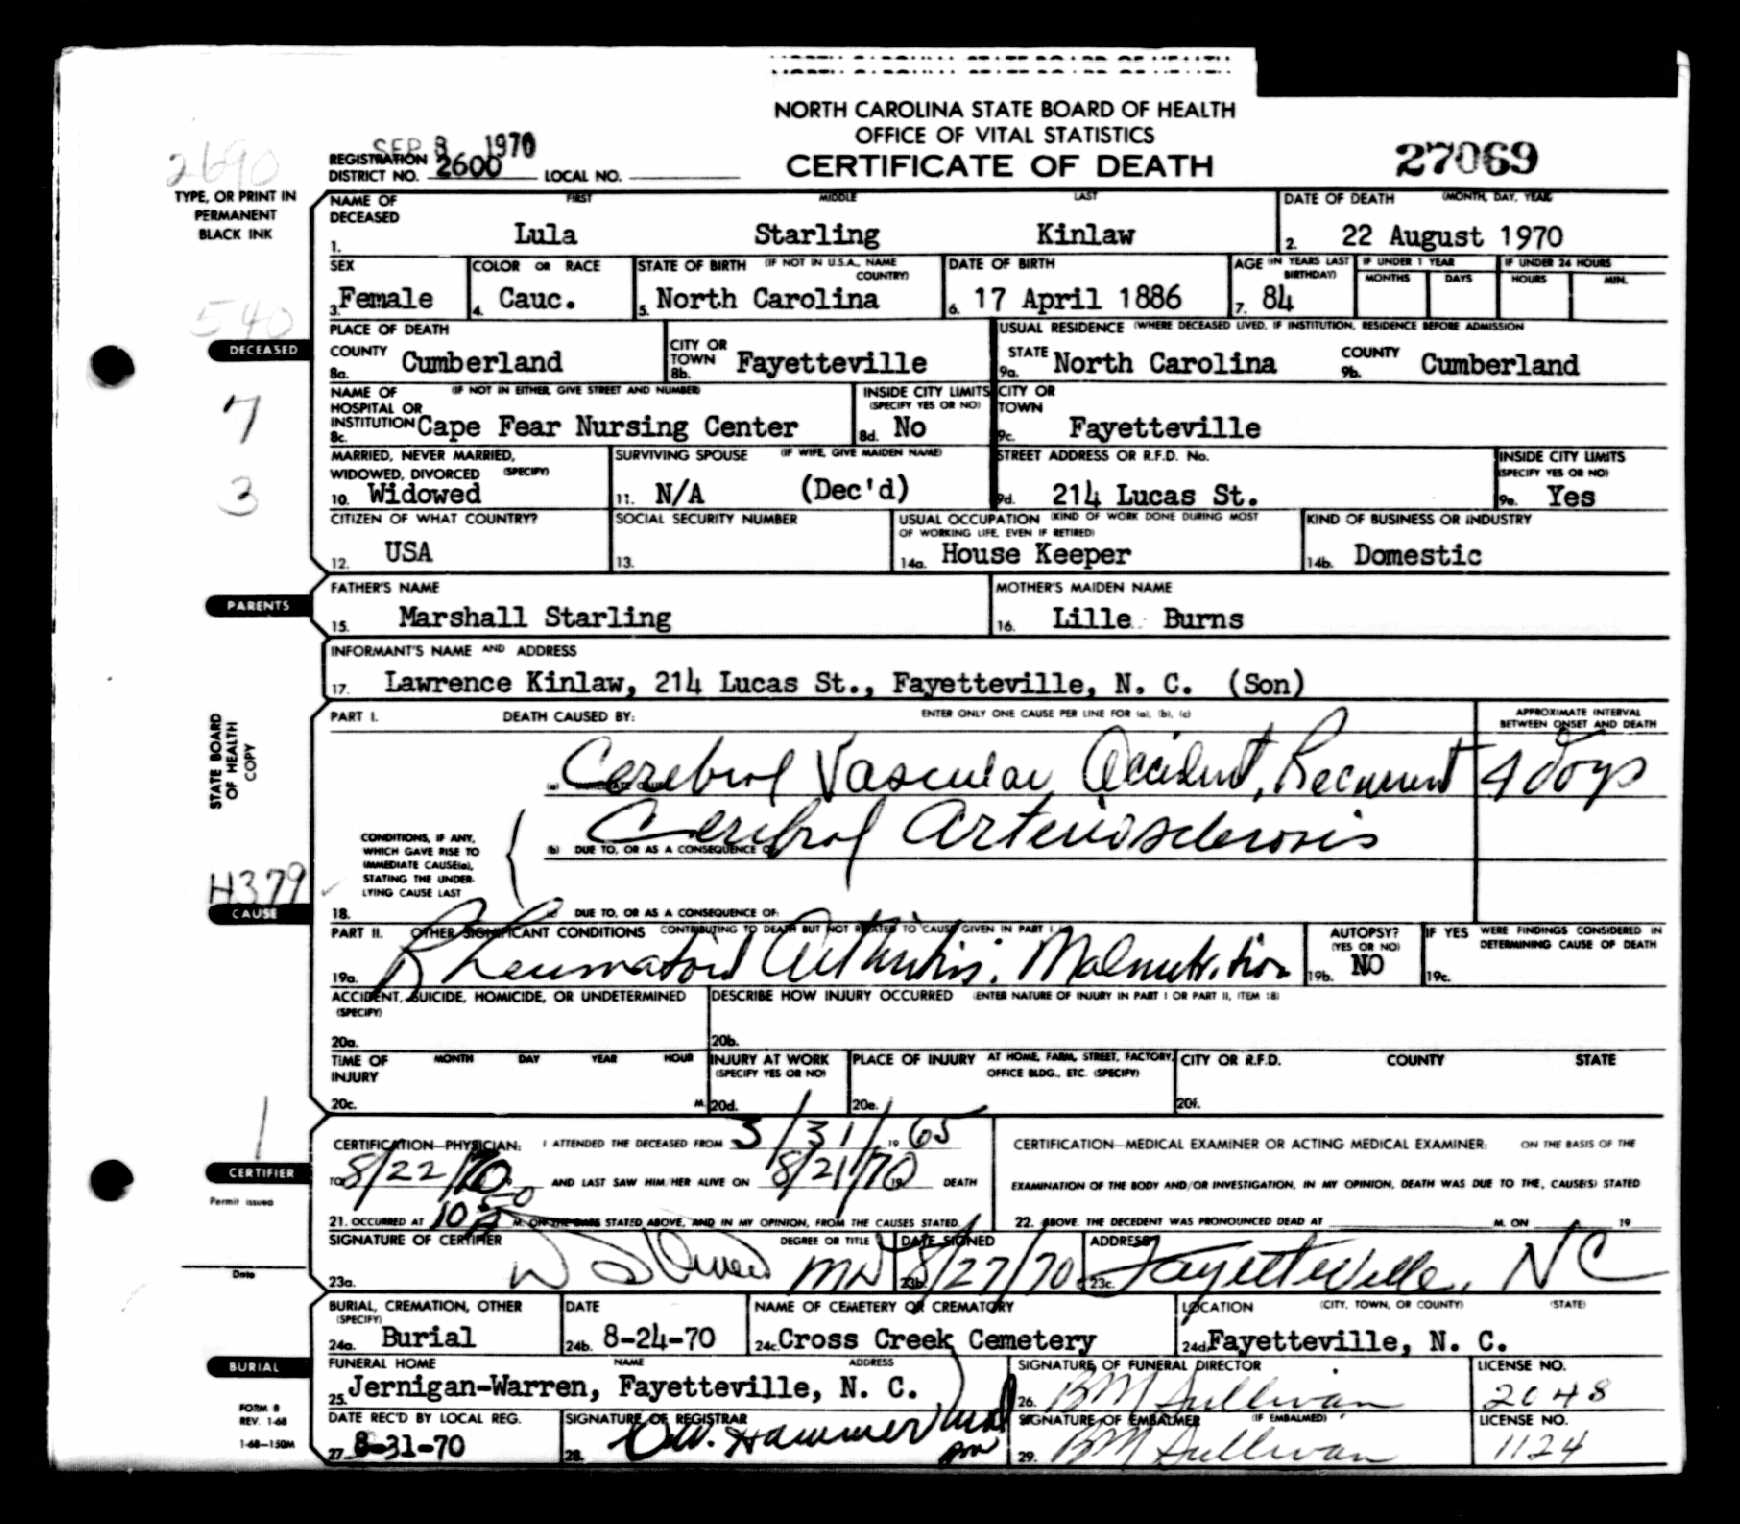 NORTH CAROLINA STATE BOARD OF HEALTH
NORTH CAROLINA STATE BOARD OF HEALTH
OFFICE OF VITAL STATISTICS
CERTIFICATE OF DEATH
27069
2690
SEP 3 1970
REGISTRATION DISTRICT NO. 2600 LOCAL NO.
TYPE, OR PRINT IN
PERMANENT
BLACK INK
NAME OF DECEASED FIRST MIDDLE LAST DATE OF DEATH (MONTH, DAY, YEAR)
1. Lula Starling Kinlaw 2. 22 August 1970
SEX COLOR OR RACE STATE OF BIRTH (IF NOT IN U.S.A., NAME COUNTRY) DATE OF BIRTH AGE (IN YEARS LAST BIRTHDAY) IF UNDER 1 YEAR IF UNDER 24 HOURS
MONTHS DAYS HOURS MIN.
3. Female 4. Cauc. 5. North Carolina 6. 17 April 1886 7. 84
540
DECEASED
PLACE OF DEATH USUAL RESIDENCE (WHERE DECEASED LIVED, IF INSTITUTION, RESIDENCE BEFORE ADMISSION
COUNTY 8a. Cumberland CITY OR TOWN 8b. Fayetteville STATE 9a. North Carolina COUNTY 9b. Cumberland
7
NAME OF HOSPITAL OR INSTITUTION (IF NOT IN EITHER, GIVE STREET AND NUMBER) INSIDE CITY LIMITS (SPECIFY YES OR NO) CITY OR TOWN
8c. Cape Fear Nursing Center 8d. No 9c. Fayetteville
3
MARRIED, NEVER MARRIED, WIDOWED, DIVORCED (SPECIFY) SURVIVING SPOUSE (IF WIFE, GIVE MAIDEN NAME) STREET ADDRESS OR R.F.D. No. INSIDE CITY LIMITS (SPECIFY YES OR NO)
10. Widowed 11. N/A (Dec'd) 9d. 214 Lucas St. 9e. Yes
CITIZEN OF WHAT COUNTRY? SOCIAL SECURITY NUMBER USUAL OCCUPATION (KIND OF WORK DONE DURING MOST OF WORKING LIFE, EVEN IF RETIRED) KIND OF BUSINESS OR INDUSTRY
12. USA 13. 14a. House Keeper 14b. Domestic
PARENTS
FATHER'S NAME MOTHER'S MAIDEN NAME
15. Marshall Starling 16. Lille Burns
INFORMANT'S NAME AND ADDRESS
17. Lawrence Kinlaw, 214 Lucas St., Fayetteville, N. C. (Son)
STATE BOARD
OF HEALTH
COPY
PART I. DEATH CAUSED BY: ENTER ONLY ONE CAUSE PER LINE FOR (a), (b), (c) APPROXIMATE INTERVAL BETWEEN ONSET AND DEATH
(a) Cerebral Vascular Accident, Recurrent 4 days
Cerebral Arteriosclerosis
(b) DUE TO, OR AS A CONSEQUENCE OF
CONDITIONS, IF ANY,
WHICH GAVE RISE TO
IMMEDIATE CAUSE(a),
STATING THE UNDER-
LYING CAUSE LAST
H379
CAUSE
18. DUE TO, OR AS A CONSEQUENCE OF:
PART II. OTHER SIGNIFICANT CONDITIONS CONTRIBUTING TO DEATH BUT NOT RELATED TO CAUSE GIVEN IN PART I AUTOPSY? (YES OR NO) IF YES WERE FINDINGS CONSIDERED IN DETERMINING CAUSE OF DEATH
19a. Rheumatoid Arthritis, Malnutrition 19b. NO 19c.
ACCIDENT, SUICIDE, HOMICIDE, OR UNDETERMINED (SPECIFY) DESCRIBE HOW INJURY OCCURRED (ENTER NATURE OF INJURY IN PART I OR PART II, ITEM 18)
20a. 20b.
TIME OF INJURY MONTH DAY YEAR HOUR INJURY AT WORK (SPECIFY YES OR NO) PLACE OF INJURY AT HOME, FARM, STREET, FACTORY, OFFICE BLDG., ETC. (SPECIFY) CITY OR R.F.D. COUNTY STATE
20c. M. 20d. 20e. 20f.
1
CERTIFIER
Permit issued
Date
CERTIFICATION—PHYSICIAN: I ATTENDED THE DECEASED FROM 3/31/ 19 65
TO 8/22/70 AND LAST SAW HIM/HER ALIVE ON 8/21/70 DEATH
21. OCCURRED AT 10 M. ON THE DATE STATED ABOVE, AND IN MY OPINION, FROM THE CAUSES STATED.
CERTIFICATION—MEDICAL EXAMINER OR ACTING MEDICAL EXAMINER: ON THE BASIS OF THE
EXAMINATION OF THE BODY AND/OR INVESTIGATION, IN MY OPINION, DEATH WAS DUE TO THE, CAUSE(S) STATED
22. ABOVE. THE DECEDENT WAS PRONOUNCED DEAD AT M. ON 19
SIGNATURE OF CERTIFIER DEGREE OR TITLE DATE SIGNED ADDRESS
23a. MD 23b. 8/27/70 23c. Fayetteville, NC
BURIAL, CREMATION, OTHER (SPECIFY) DATE NAME OF CEMETERY OR CREMATORY LOCATION (CITY, TOWN, OR COUNTY) (STATE)
24a. Burial 24b. 8-24-70 24c. Cross Creek Cemetery 24d. Fayetteville, N. C.
BURIAL
FUNERAL HOME NAME ADDRESS SIGNATURE OF FUNERAL DIRECTOR LICENSE NO.
25. Jernigan-Warren, Fayetteville, N. C. 26. BM Sullivan 2048
FORM 8
REV. 1-68
1-68—150M
DATE REC'D BY LOCAL REG. SIGNATURE OF REGISTRAR SIGNATURE OF EMBALMER (IF EMBALMED) LICENSE NO.
27. 8-31-70 28. 29. BM Sullivan 1124